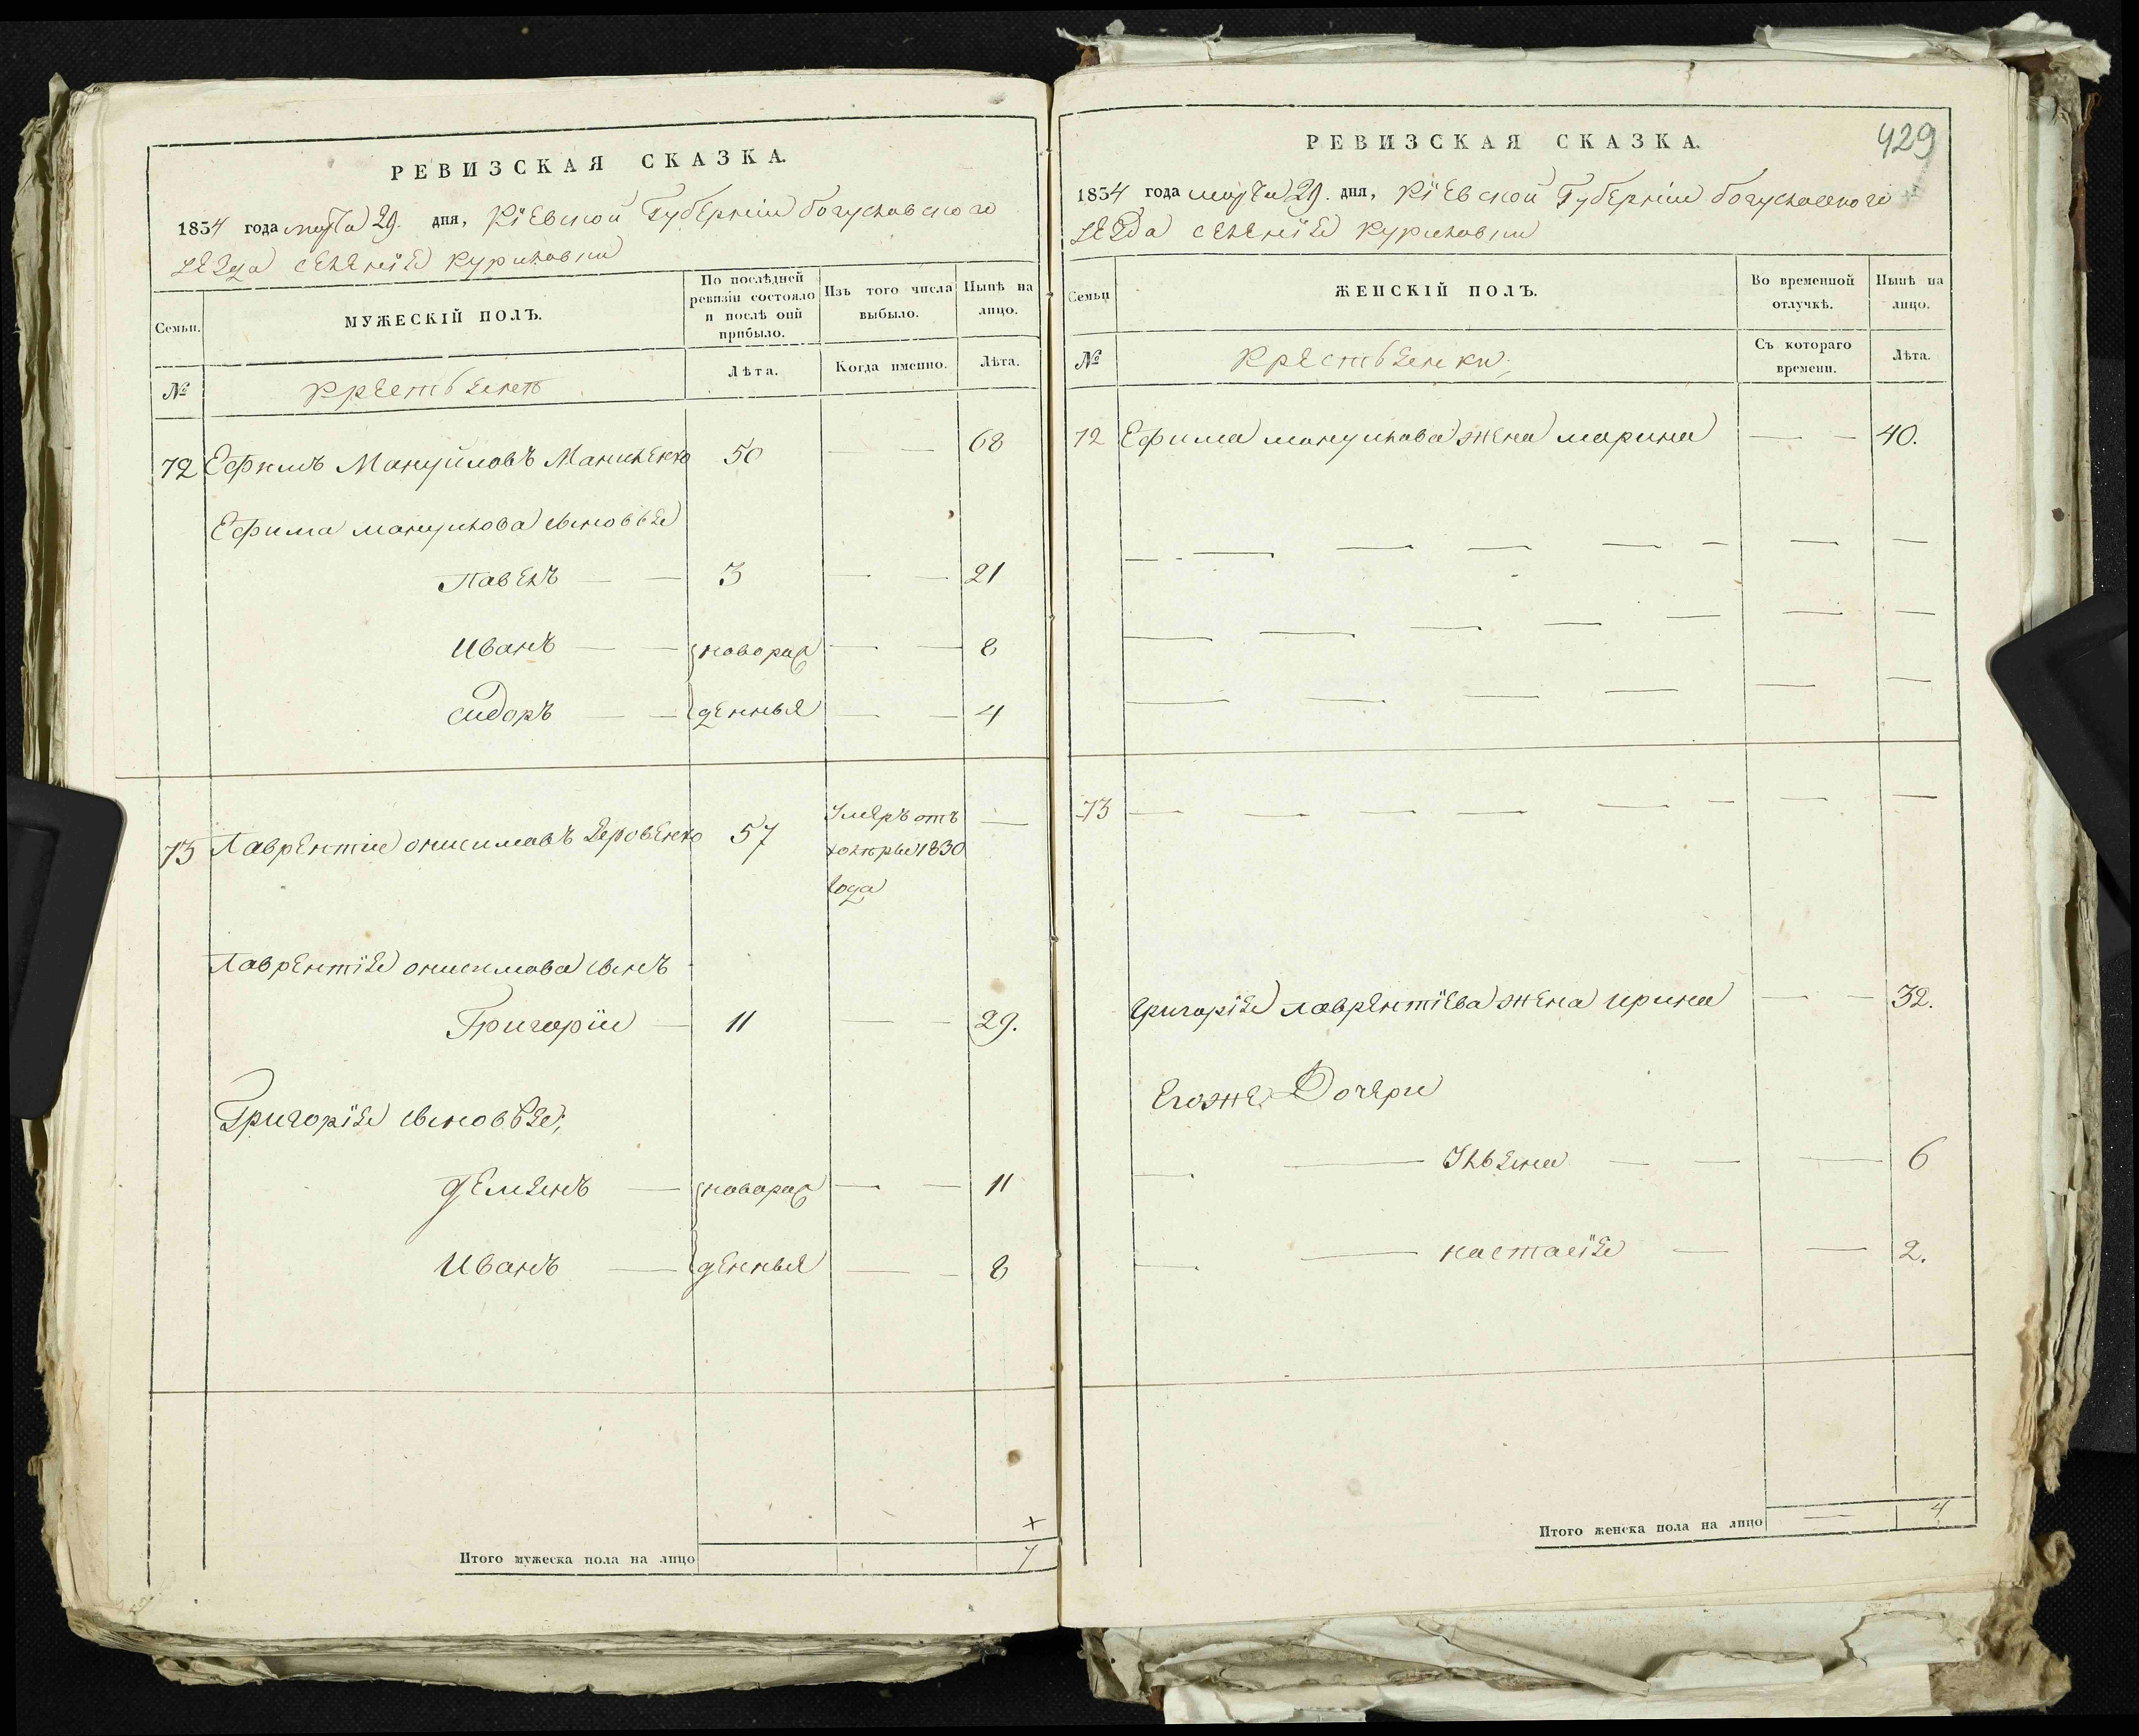 РЕВИЗСКАЯ СКАЗКА.
1834 года марта 29. дня, Кіевской Губерніи богуславского
уезда селенія куриловки
Семьи.
МУЖЕСКІЙ ПОЛЪ.
По послѣдней ревизіи состояло и послѣ оній прибыло.
Изъ того числа выбыло.
Нынѣ на лицо.
№
крестьяне
Лѣта.
Когда именно.
Лѣта.
72 Ефимъ Мануйловъ 50 — — 68
Ефима мануилова сыновья
Павелъ — — 3 — — 21
Иванъ — — новораж — — 8
сидоръ — — денныя — — 4
73 Лаврентии онисимовъ 57 Умеръ отъ —
1830
года
Лаврентія онисимова сынъ
Григоріи — 11 — — 29.
Григорія сыновья;
демянъ — новораж — — 11
Иванъ — денныя — — 8
Итого мужеска пола на лицо 7
429
РЕВИЗСКАЯ СКАЗКА.
1834 года марта 29. дня, Кіевской Губерніи богуславского
уезда селенія куриловки
Семьи
ЖЕНСКІЙ ПОЛЪ.
Во временной отлучкѣ.
Нынѣ на лицо.
№
крестьянки;
Съ котораго времени.
Лѣта.
72 Ефима мануилова жена марина — — 40.
73 — — — — — — — —
григорія лаврентіева жена ирина — — 32.
Егоже Дочери
— — Ульяна — — — 6
— — настасія — — 2.
Итого женска пола на лицо — 4